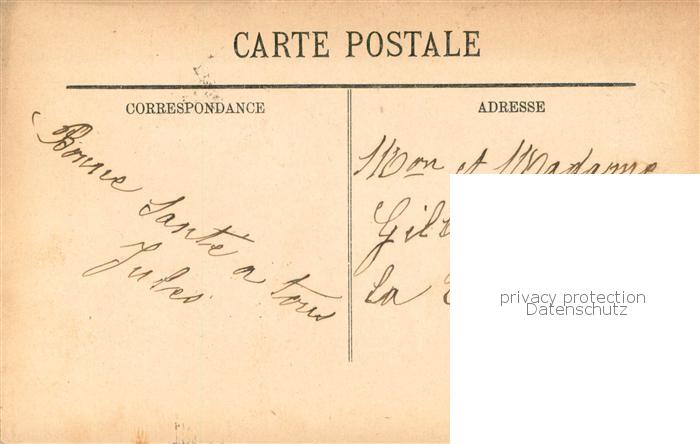 CARTE POSTALE
CORRESPONDANCE
ADRESSE
Bonne Santé a tous
Jules
Mon et Madame
la
privacy protection
Datenschutz